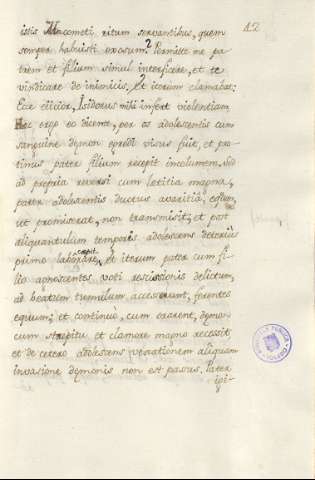 42
istis Macometi ritum servantibus, quem
semper habuisti exosum? Permitte me pa-
trem et filium simul interficere, et te
vindicare de inimicis. Et iterum clamabat:
Ecce eiicior, Isidorus mihi infert violentiam
Hæc ergo eo dicente, per os adolescentis cum
sanguine dęmon egredi visus fuit, et pro-
tinus pater filium recepit incolumem. Sed
ad propria reversi cum lætitia magna,
pater adolescentis ductus avaritia, equum,
ut promiserat, non transmisit; et post
aliquantulum temporis adolescens deterius
primo laborare cœpit, et iterum pater cum fi-
lio agnoscentes voti rescissionis delictum,
ad beatum tremulum accesserunt, ferentes
equum; et continuò, cum exarent, dęmon
cum strepitu et clamore magno recessit
et de cetero adolescens vexationem aliquam
invasione dęmonis non est passus. Pater
igi-
BIBLIOTECA PUBLICA
TOLEDO